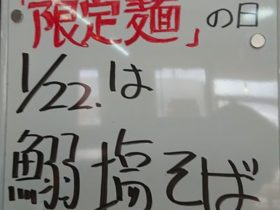 「限定麺」の日
1/22.は
鰯塩そば